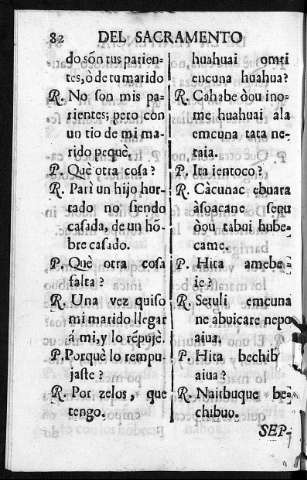 82 DEL SACRAMENTO
do són tus parien-
tes, ò de tu marido
R. No son mis pa-
rientes; pero còn
un tio de mi ma-
rido pequè.
P. Què otra cosa?
R. Parì un hijo hur-
tado no siendo
casada, de un hõ-
bre casado.
P. Què otra cosa
falta?
R. Una vez quiso
mi marido llegar
á mi, y lo repujè.
P. Porquè lo rempu-
jaste?
R. Por zelos, que
tengo.
huahuai omri
encuna huahua?
R. Cahabe òou ino-
me huahuai ala
emcuna tata ne-
taia.
P. Ita ientoco?
R. Càcunac ebuara
àsoacane senu
òou tabui hube-
came.
P. Hita amebe-
ie?
R. Setuli emcuna
ne abuicare nepo
aiua.
P. Hita bechib
aiua?
R. Naitbuque be-
chibuo.
SEP-